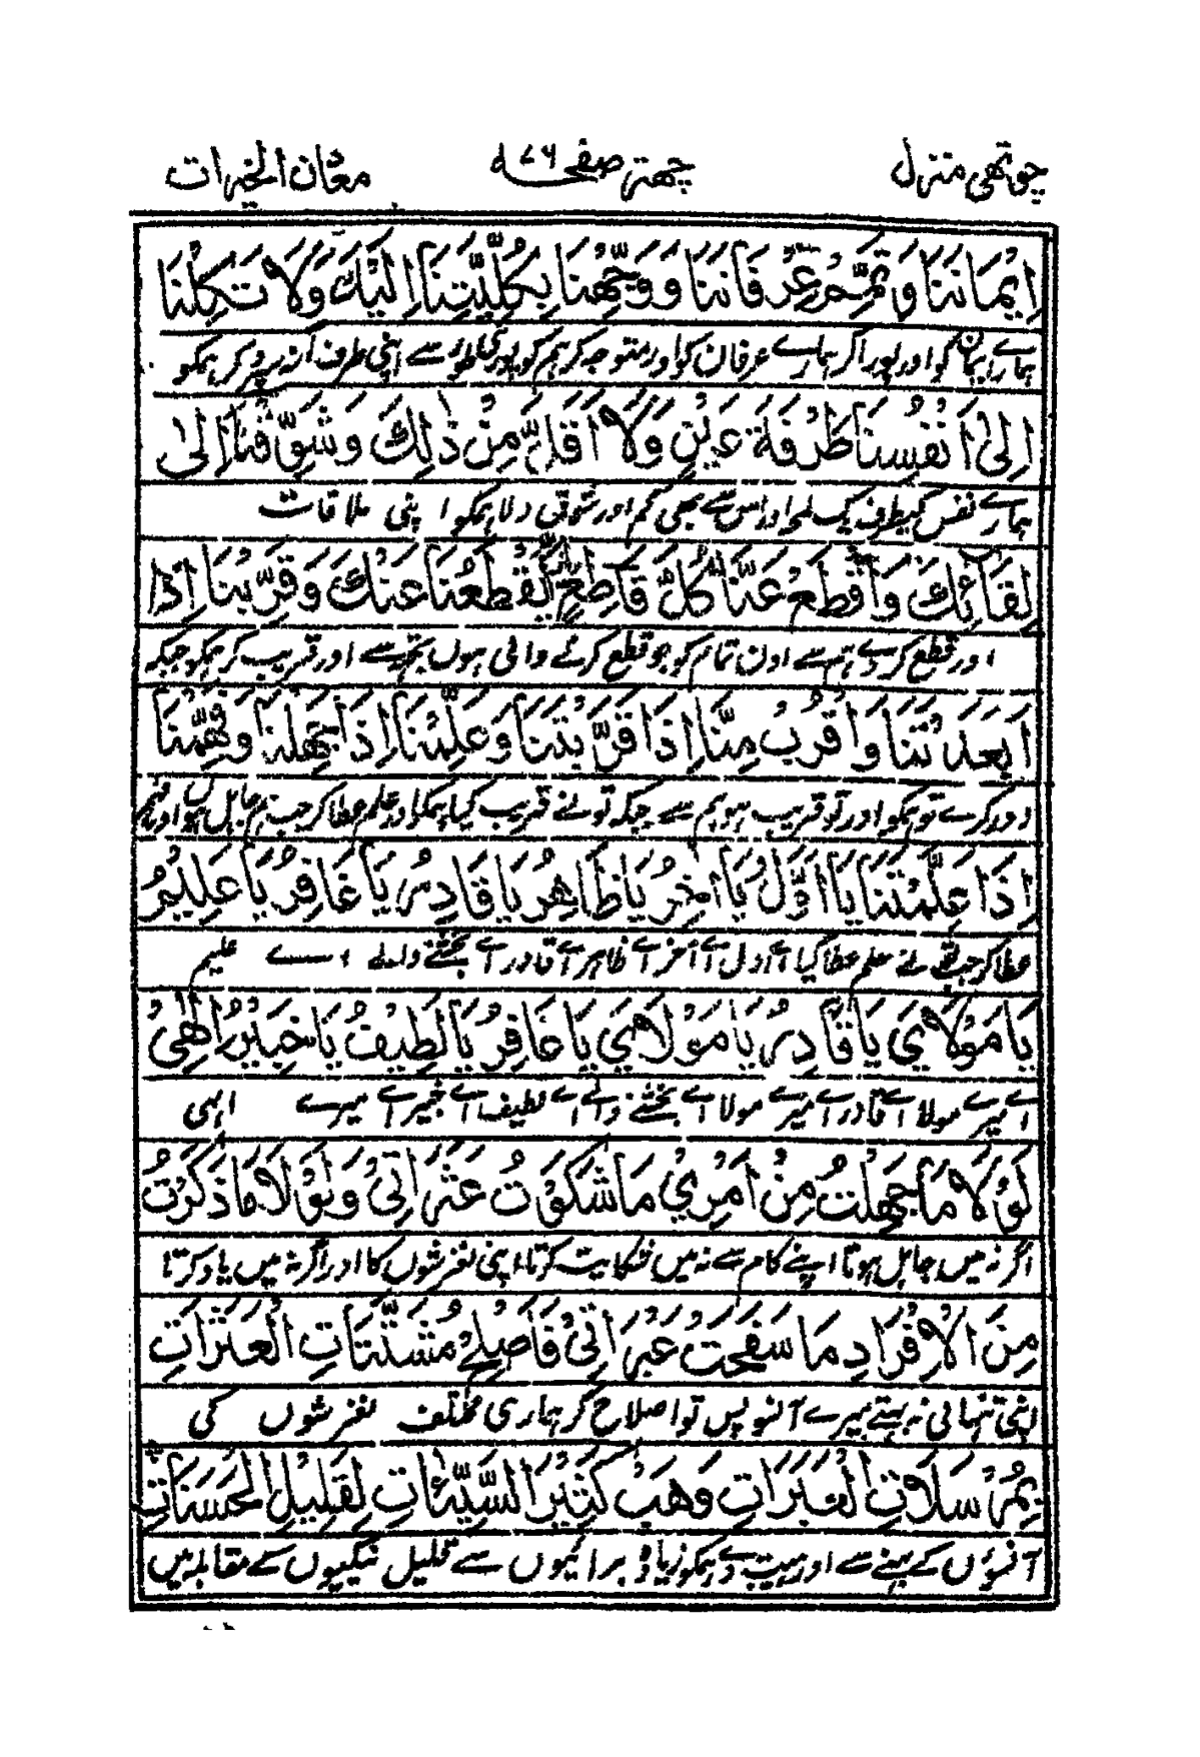 چوتھی منزل چھتر صفحہ ۷۶ معدن الخیرات
اِيْمَانَنَا وَتَمِّمْ عِرْفَانَنَا وَوَجِّهْنَا بِكُلِّيَّتِنَا اِلَيْكَ وَلَا تَكِلْنَا
ہمارے ایمان کو اور پورا کر ہمارے عرفان کو اور متوجہ کر ہم کو پوری طور سے اپنی طرف اور نہ سپرد کر ہمکو
اِلٰى اَنْفُسِنَا طَرْفَةَ عَيْنٍ وَلَا اَقَلَّ مِنْ ذٰلِكَ وَشَوِّقْنَا اِلٰى
ہمارے نفس کیطرف یک لمحہ اور اس سے بھی کم اور شوق دلا ہمکو اپنی ملاقات
لِقَآئِكَ وَاَقْطَعْ عَنَّا كُلَّ قَاطِعٍ يَّقْطَعُنَا عَنْكَ وَقَرِّبْنَا اِذَا
اور قطع کر دے ہم سے اون تمام کو جو قطع کرنے والی ہوں تجھ سے اور قریب کر ہمکو جبکہ
اَبْعَدْتَنَا وَاقْرُبْ مِنَّا اِذَا قَرَّبْتَنَا وَعَلِّمْنَا اِذَا جَهِلْنَا وَفَهِّمْنَا
دور کرے تو ہمکو اور تو قریب ہو ہم سے جبکہ تو نے قریب کیا ہمکو اور علم عطا کر جب ہم جاہل ہوں اور فہم
اِذَا عَلَّمْتَنَا يَا اَوَّلُ يَا اٰخِرُ يَا ظَاهِرُ يَا قَادِرُ يَا غَافِرُ يَا عَلِيْمُ
عطا کر جب تو نے علم عطا کیا اے اول اے آخر اے ظاہر اے قادر اے بخشنے والے اے علیم
يَا مَوْلَايَ يَا قَادِرُ يَا مَوْلَايَ يَا غَافِرُ يَا لَطِيْفُ يَا خَبِيْرُ اِلٰهِيْ
اے میرے مولا اے قادر اے میرے مولا اے بخشنے والے اے لطیف اے خبیر اے میرے الہی
لَوْلَا مَا جَهِلْتُ مِنْ اَمْرِيْ مَا شَكَوْتُ عَثَرَاتِيْ وَلَوْلَا مَا ذَكَرْتُ
اگر نہ میں جاہل ہوتا اپنے کام سے نہ میں شکایت کرتا اپنی لغزشوں کا اور اگر نہ میں یاد کرتا
مِنَ الْاِفْرَادِ مَا سَفَحَتْ عَبَرَاتِيْ فَاَصْلِحْ مُشَتَّتَاتِ الْعَثَرَاتِ
اپنی تنہائی نہ بہتے میرے آنسو پس تو اصلاح کر ہماری مختلف لغزشوں کی
بِمُرْسَلَاتِ الْعَبَرَاتِ وَهَبْ كَثِيْرَ السَّيِّئَاتِ لِقَلِيْلِ الْحَسَنَاتِ
آنسوؤں کے بہنے سے اور ہمکو زیادہ برائیوں سے قلیل نیکیوں کے مقابلہ میں